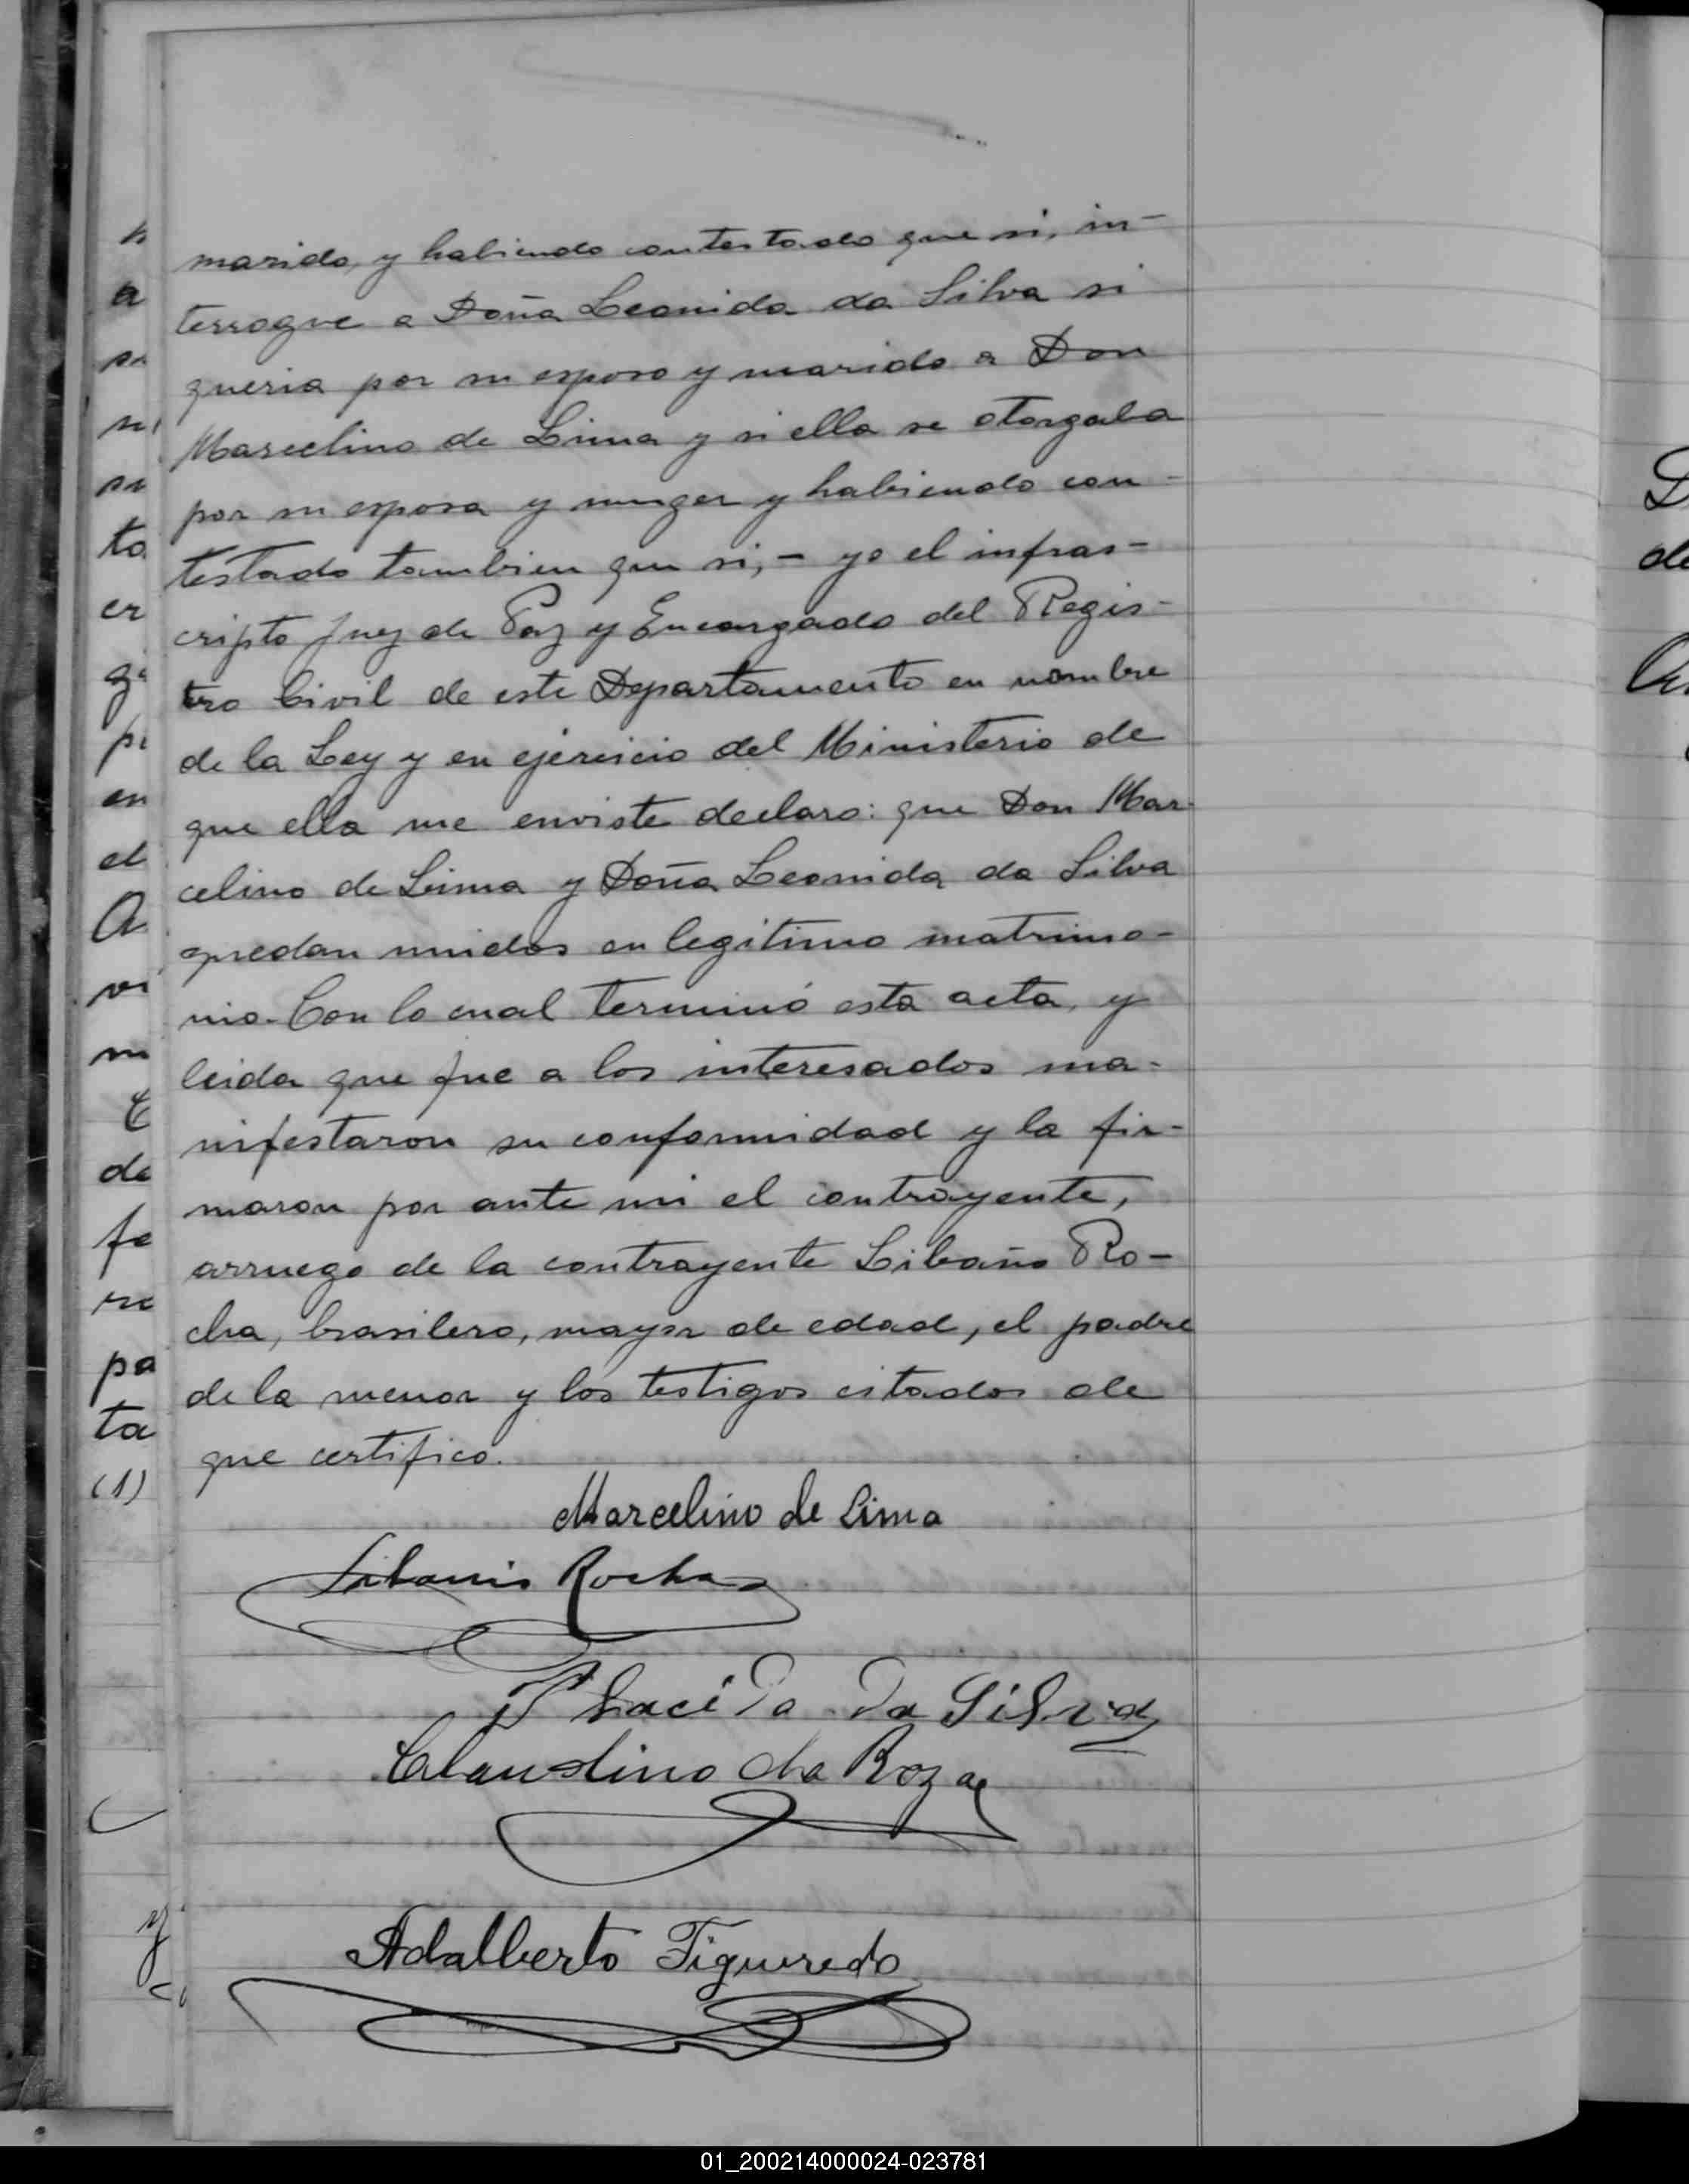 marido, y habiendo contestado que si, in-
terrogue a Doña Leonida da Silva si
queria por su esposo y marido a Don
Marcelino de Lima y si ella se otorgaba
por su esposa y muger y habiendo con-
testado tambien que si, - yo el infras-
cripto Juez de Paz y Encargado del Regis-
tro Civil de este Departamento en nombre
de la Ley y en ejercicio del Ministerio de
que ella me enviste declaro: que Don Mar-
celino de Lima y Doña Leonida da Silva
quedan unidos en legitimo matrimo-
nio. Con lo cual terminó esta acta, y
leida que fue a los interesados ma-
nifestaron su conformidad y la fir-
maron por ante mi el contrayente,
arruego de la contrayente Libanio Ro-
cha, brasilero, mayor de edad, el padre
de la menor y los testigos citados de
que certifico.
Marcelino de Lima
Libanio Rocha
Placido da Silva
Claudino da Roza
Adalberto Figueredo
01_200214000024-023781